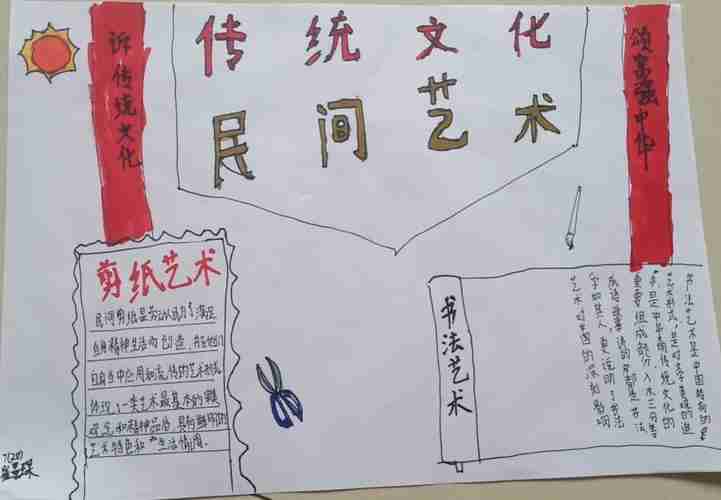 传统文化
民间艺术
诉传统文化
颂富强中华
剪纸艺术
民间剪纸是劳动人民为了满足
自身精神生活而创造，并在他们
自身当中应用和流传的艺术形式
体现了一类艺术最基本的审美
观念和精神品质，具有鲜明的
艺术特色和生活情调。
书法艺术
书法艺术是中国特有的
艺术形式，是对文字美观的进
中华传统文化的
重要组成部分，入木三分等
成语故事讲的都是书法
字如其人，更说明了书法
艺术对中国的深刻影响
7(27)